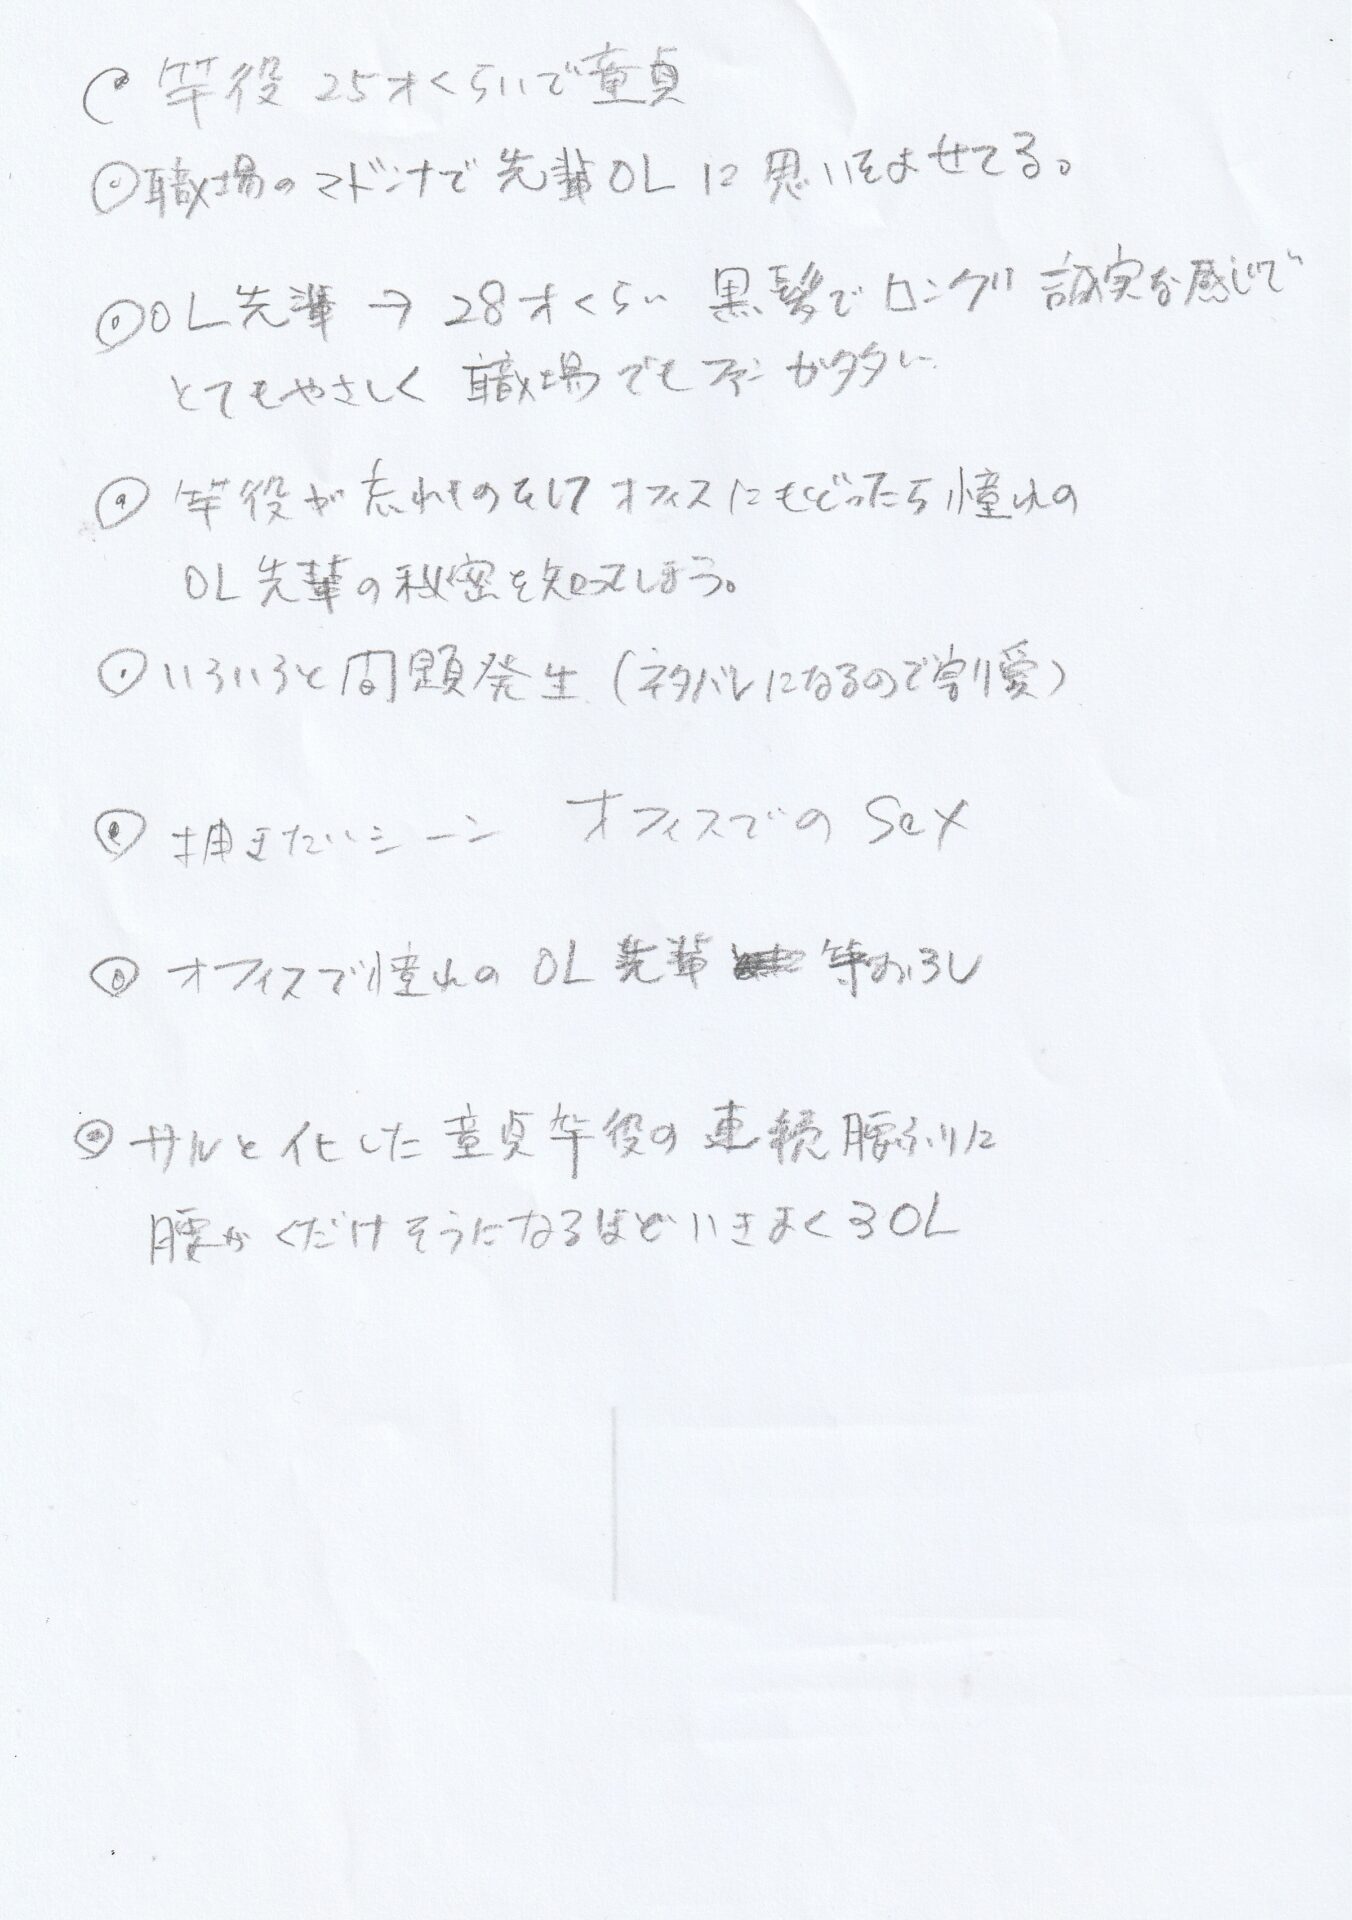 竿役 25才くらいで童貞
職場のマドンナで先輩OLに思いをよせてる。
OL先輩→28才くらい 黒髪でロング 誠実な感じで
とてもやさしく 職場でもファンが多い
竿役が忘れものをしてオフィスにもどったら憧れの
OL先輩の秘密を知ってしまう。
いろいろと問題発生(ネタバレになるので割愛)
描きたいシーン オフィスでのSex
オフィスで憧れのOL先輩 筆おろし
サルと化した童貞竿役の連続腰ふりに
腰がくだけそうになるほどいきまくるOL